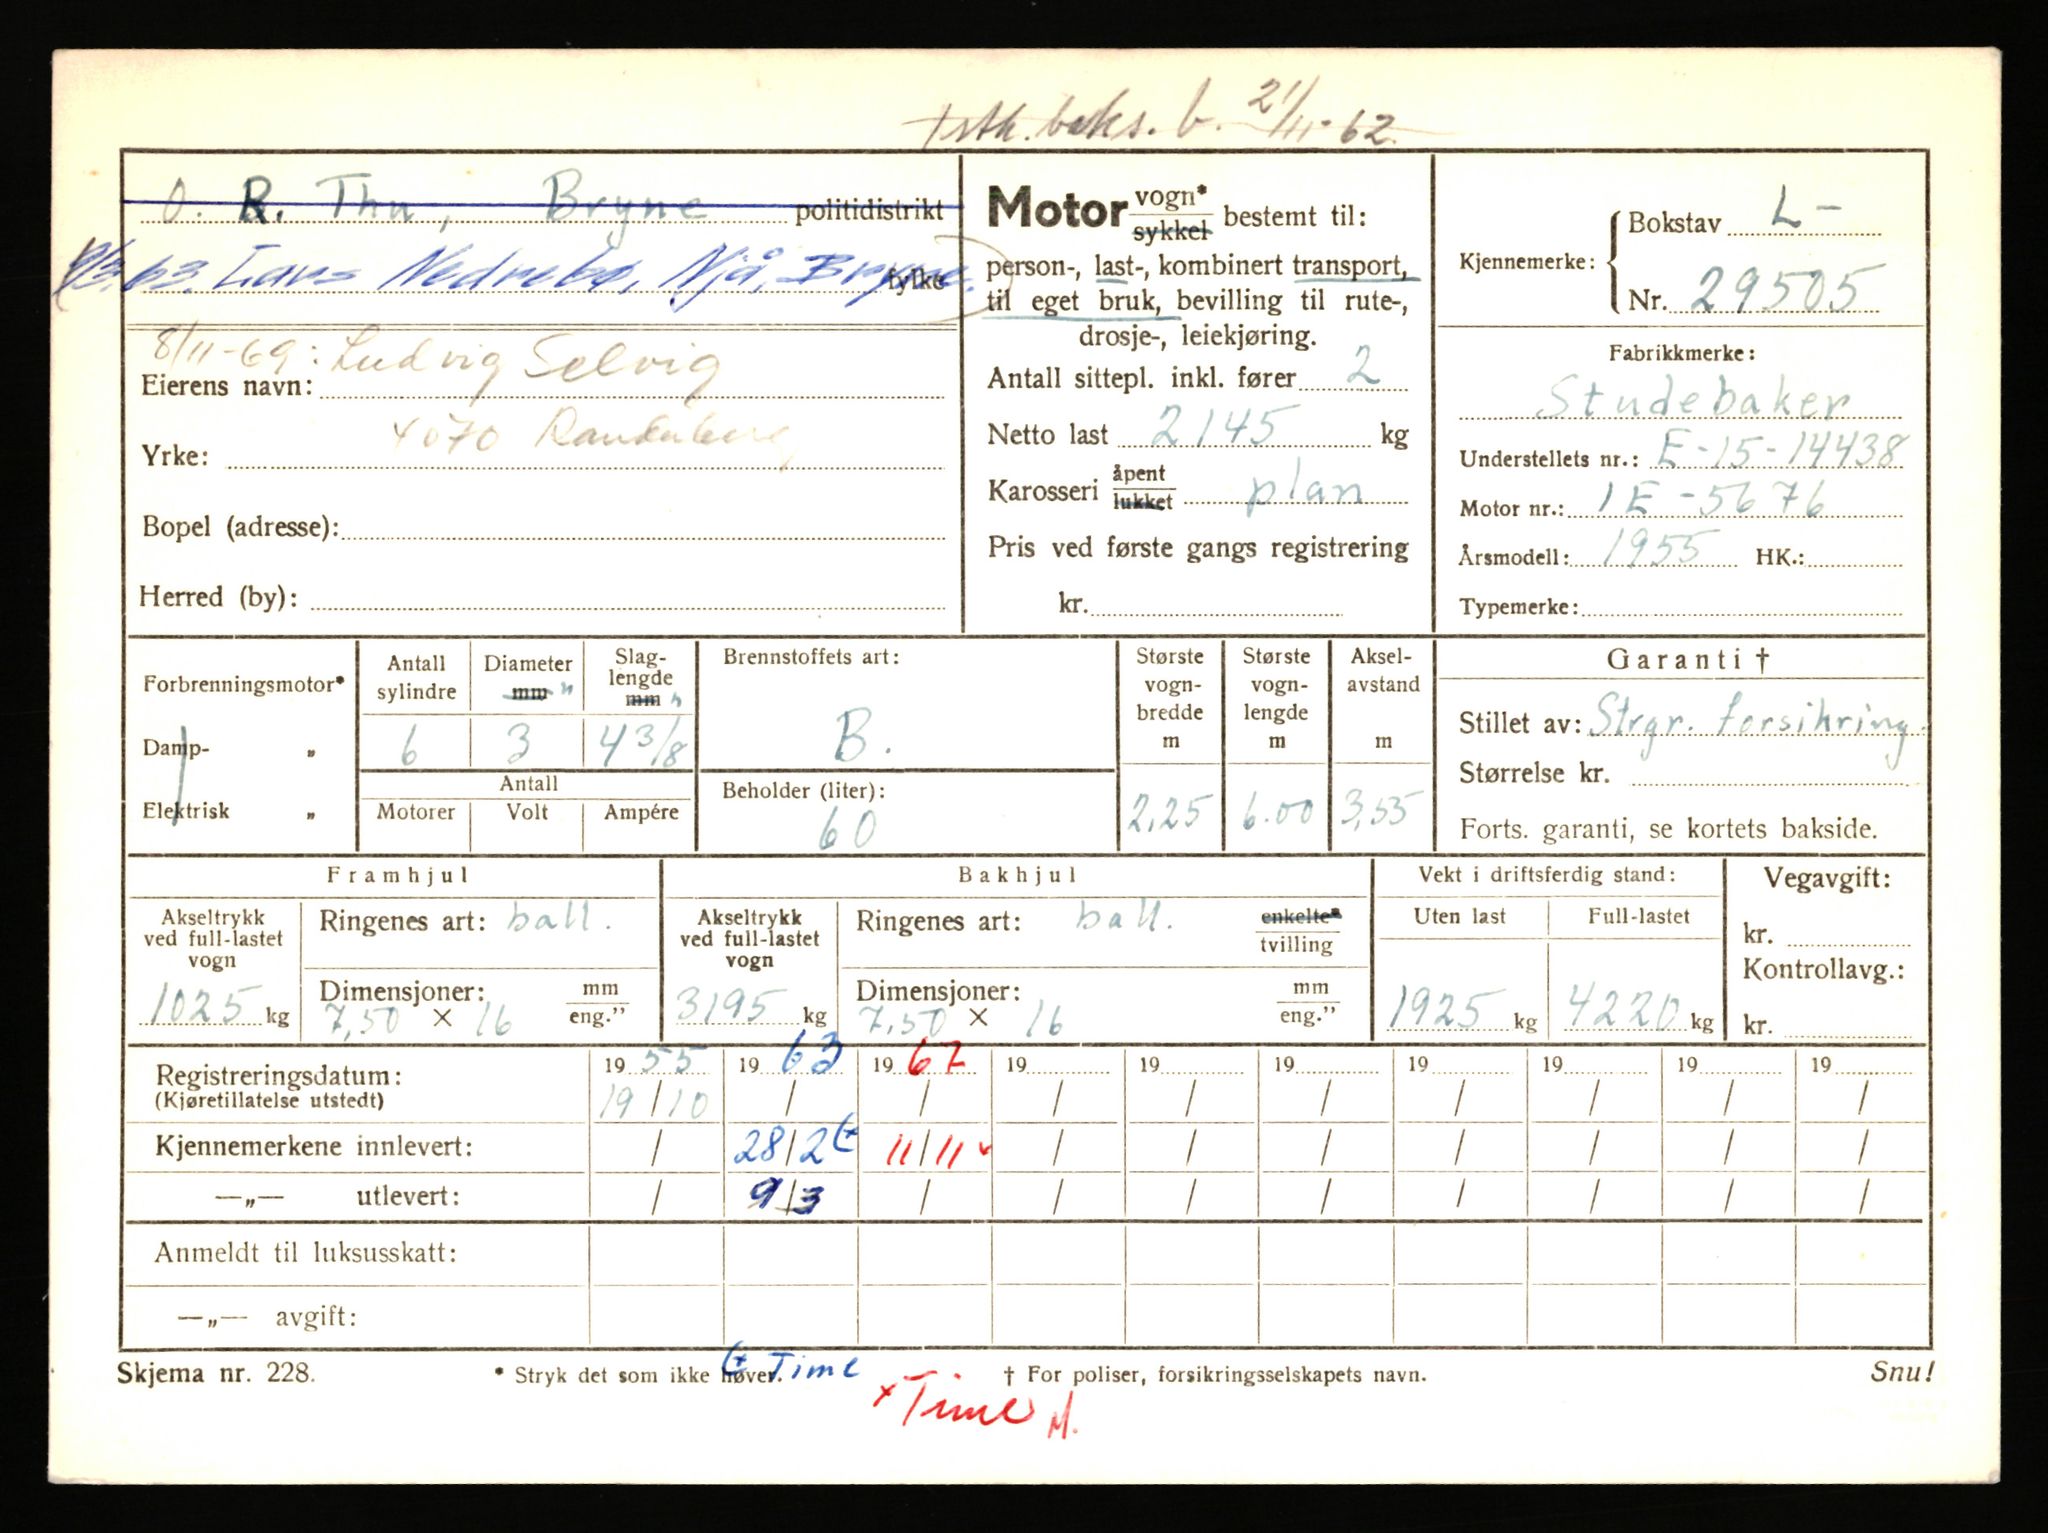 baks. b. 21/11-62
O. R. Thu, Bryne politidistrikt
9/3.63. Lars Nedrebø, Njå, Bryne. fylke
8/11-69: Ludvig Selvig
Eierens navn:
4070 Randaberg
Yrke:
Bopel (adresse):
Herred (by):
Motor vogn* sykkel bestemt til:
person-, last-, kombinert transport,
til eget bruk, bevilling til rute-,
drosje-, leiekjøring.
Antall sittepl. inkl. fører 2
Netto last 2145 kg
Karosseri åpent lukket plan
Pris ved første gangs registrering
kr.
Kjennemerke: Bokstav L-
Nr. 29505
Fabrikkmerke:
Studebaker
Understellets nr.: E-15-14438
Motor nr.: 1E-5676
Årsmodell: 1955 HK.:
Typemerke:
Forbrenningsmotor*
Damp- „
Elektrisk „
Antall sylindre 6
Diameter mm " 3
Slaglengde mm " 4 3/8
Antall
Motorer Volt Ampére
Brennstoffets art:
B.
Beholder (liter):
60
Største vogn-bredde m 2,25
Største vogn-lengde m 6.00
Aksel-avstand m 3,55
Garanti †
Stillet av: Strgr. forsikring.
Størrelse kr.
Forts. garanti, se kortets bakside.
Framhjul
Akseltrykk ved full-lastet vogn 1025 kg
Ringenes art: ball.
Dimensjoner: mm eng."
7,50 × 16
Bakhjul
Akseltrykk ved full-lastet vogn 3195 kg
Ringenes art: ball. enkelte* tvilling
Dimensjoner: mm eng."
7,50 × 16
Vekt i driftsferdig stand:
Uten last Full-lastet
1925 kg 4220 kg
Vegavgift:
kr.
Kontrollavg.:
kr.
Registreringsdatum: 19 55 19 63 19 67 19 19 19 19 19 19 19
(Kjøretillatelse utstedt) 19/10 / / / / / / / / /
Kjennemerkene innlevert: / 28/2 11/11 / / / / / / /
—„— utlevert: / 9/3 / / / / / / / /
Anmeldt til luksusskatt:
—„— avgift:
Skjema nr. 228. * Stryk det som ikke høver. Time † For poliser, forsikringsselskapets navn. Snu!
× Time M.